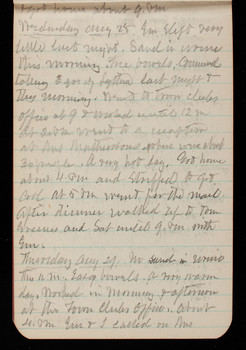 home about 9. P.m.
Wednesday Aug 28 Em slept very
little last night. Sand is worse
this morning. Free bowels.
to day & gordy last night &
this morning. Went to Town Clerks
office at 9 & worked until 12 m
At 3 P.m went to a reception
at Mrs where were about
30 people. A very hot day. Got home
about 4. P.m and stripped to get
cool at 5 P.m went for the mail
After dinner walked up to Tom
and sat until 9. P.m with
Em.
Thursday Aug 29. My sand is worse
this a.m. Easy bowels. A very warm
day. Worked in morning & afternoon
at the Town Clerks Office. About
P.m Em & I called on Mrs